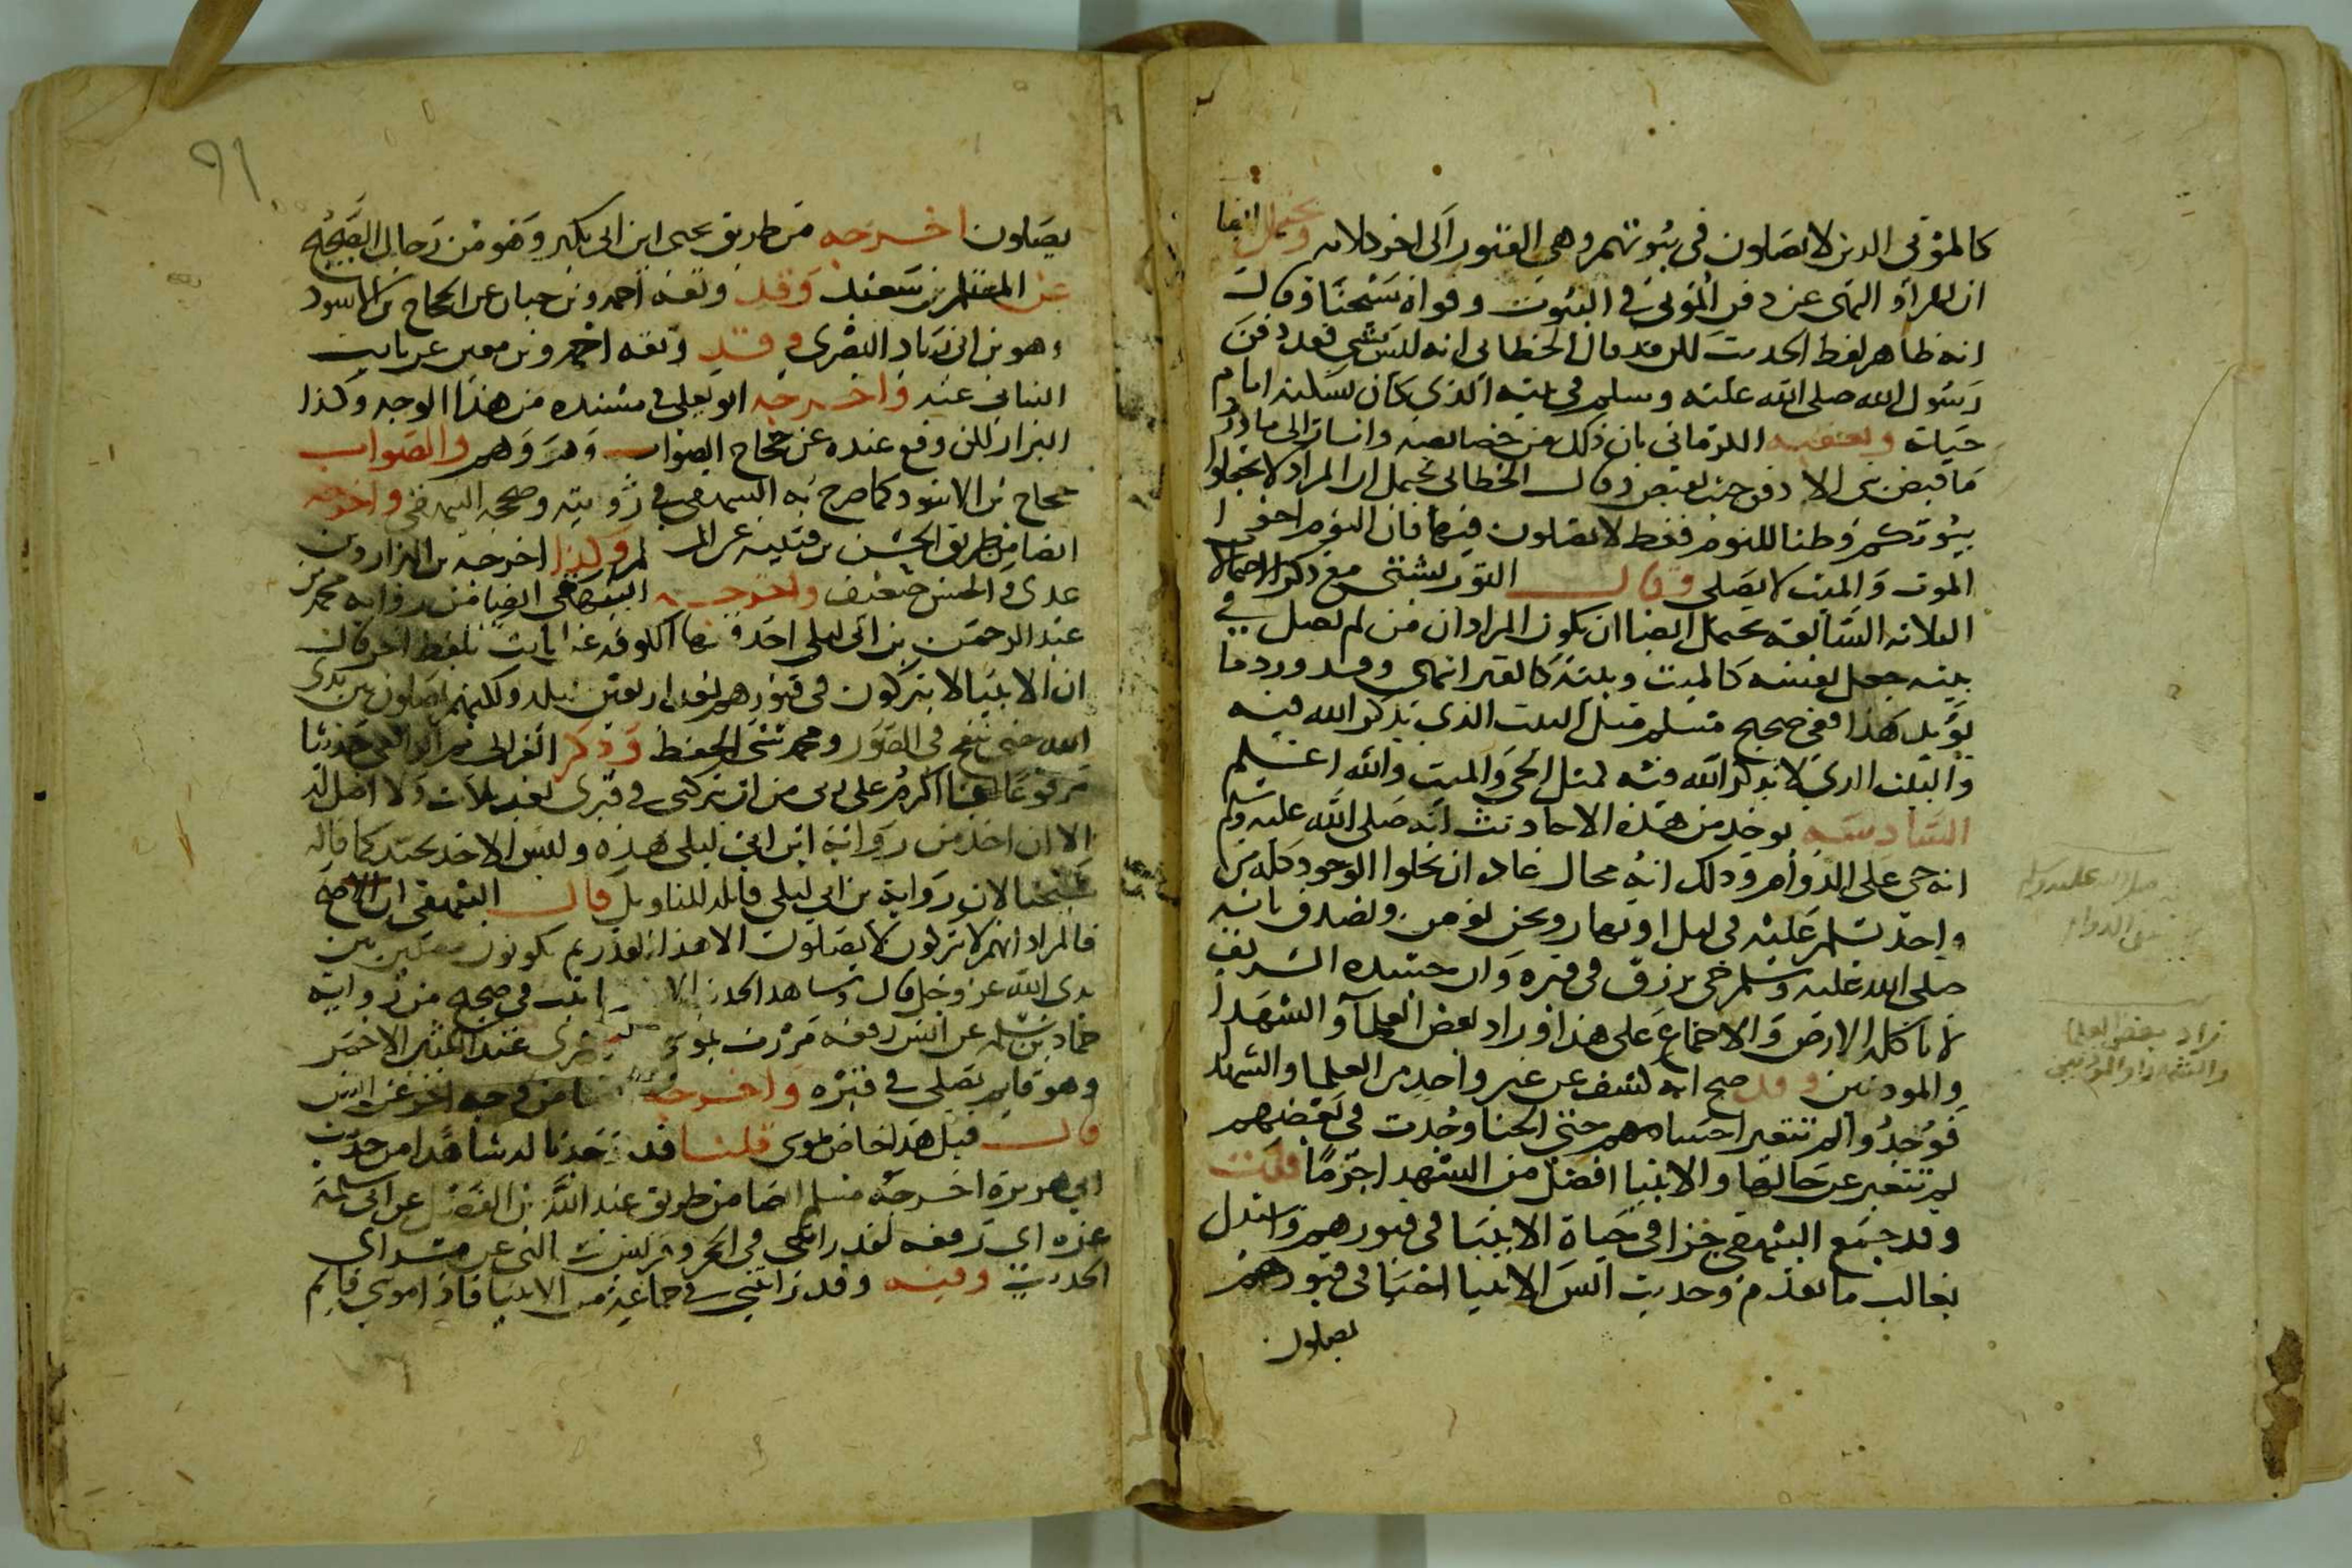 كالموتى الذين لا يصلون في بيوتهم وهي القبور الى اخر كلامه ويحتمل ايضا
ان المراد النهى عن دفن الموتى في البيوت وقواه شيخنا وقال
انه ظاهر لفظ الحديث لكن قد قال الخطابي انه ليس بشي فقد دفن
رسول الله صلى الله عليه وسلم في بيته الذي كان يسكنه ايام
حياته وتعقبه الكرماني بان ذلك من خصائصه واشار الى ما ورد
ما قبض نبى الا دفن حيث يقبض وقال الخطابي يحتمل ان المراد لا تجعلوا
بيوتكم وطنا للنوم فقط لا تصلون فيها فان النوم اخو
الموت والميت لا يصلي وقال التوربشتى مع ذكر الاحتمالا
الثلاثة السابقة يحتمل ايضا ان يكون المراد ان من لم يصل في
بيته جعل نفسه كالميت وبيته كالقبر انتهى وقد ورد ما
يؤيد هذا ففي صحيح مسلم مثل البيت الذي يذكر الله فيه
والبيت الذي لا يذكر الله فيه كمثل الحي والميت والله اعلم
السادسة يوخذ من هذه الاحاديث انه صلى الله عليه وسلم
انه حي على الدوام وذلك انه محال عادة ان يخلوا الوجود كله من
واحد يسلم عليه في ليل او نهار ونحن نؤمن ونصدق بانه
صلى الله عليه وسلم حي يرزق في قبره وان جسده الشريف
لا تاكله الارض والاجماع على هذا وزاد بعض العلماء والشهدا
والموذنين وقد صح انه كشف عن غير واحد من العلما والشهدا
فوجدوا لم تتغير اجسامهم حتى الحنا وجدت في بعضهم
لم تتغير عن حالها والانبيا افضل من الشهدا جزما قلت
وقد جمع البيهقي جزا في حياة الانبيا في قبورهم واستدل
بغالب ما تقدم وحديث انس الانبيا احيا في قبورهم
يصلون
زاد بعض العلما
والشهدا والموذنين
٩١
يصلون اخرجه من طريق يحيى ابن ابى بكير وهو من رجال الصحيح
عن المستلم بن سعيد وقد وثقه احمد وبن حبان عن الحجاج بن الاسود
وهو بن ابى زياد البصرى وقد وثقه احمد وبن معين عن ثابت
البنانى عنه واخرجه ابو يعلى في مسنده من هذا الوجه وكذا
البزار لكن وقع عنده عن حجاج الصواف وهو وهم والصواب
حجاج بن الاسود كما صرح به البيهقي في رويته وصححه البيهقي واخرجه
ايضا من طريق الحسن بن قتيبة عن المستلم وكذا اخرجه بن البزار وبن
عدى والحسن ضعيف واخرجه البيهقي ايضا من رواية محمد بن
عبد الرحمن بن ابى ليلى احد فقها الكوفة عن ثابت بلفظ اخر قال
ان الانبيا لا يتركون في قبورهم بعد اربعين ليلة ولكنهم يصلون بين يدى
الله حتى ينفخ في الصور ومحمد سئ الحفظ وذكر الغزالى ثم الرافعى حديثا
مرفوعا انا اكرم على ربى من ان يتركنى في قبرى بعد ثلاث ولا اصل له
الا ان اخذ من رواية ابن ابى ليلى هذه وليس الاخذ بجيد كما قاله
شيخنا لان رواية بن ابى ليلى قابلة للتاويل قال البيهقى ان صح
فالمراد انهم لا يتركون لا يصلون الا هذا القدر ثم يكونون مصلين بين
يدى الله عز وجل قال وشاهد الحديث الاول ما ثبت في صحيح من رواية
حماد بن سلمة عن انس رفعه مررت بموسى ليلة اسرى بى عند الكثيب الاحمر
وهو قايم يصلى في قبره واخرجه ايضا من وجه اخر عن انس
فان قيل هذا خاص بموسى قلنا قد وجدنا له شاهدا من حديث
ابى هريرة اخرجه مسلم ايضا من طريق عبد الله بن الفضل عن ابى سلمة
عنه اى رفعه لقد رايتنى في الحجر وقريش تسالنى عن مسراى
الحديث وفيه وقد رايتنى في جماعة من الانبيا فاذا موسى قايم